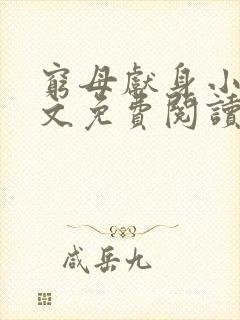 窮母獻身小
文免費閱讀
咸岳九